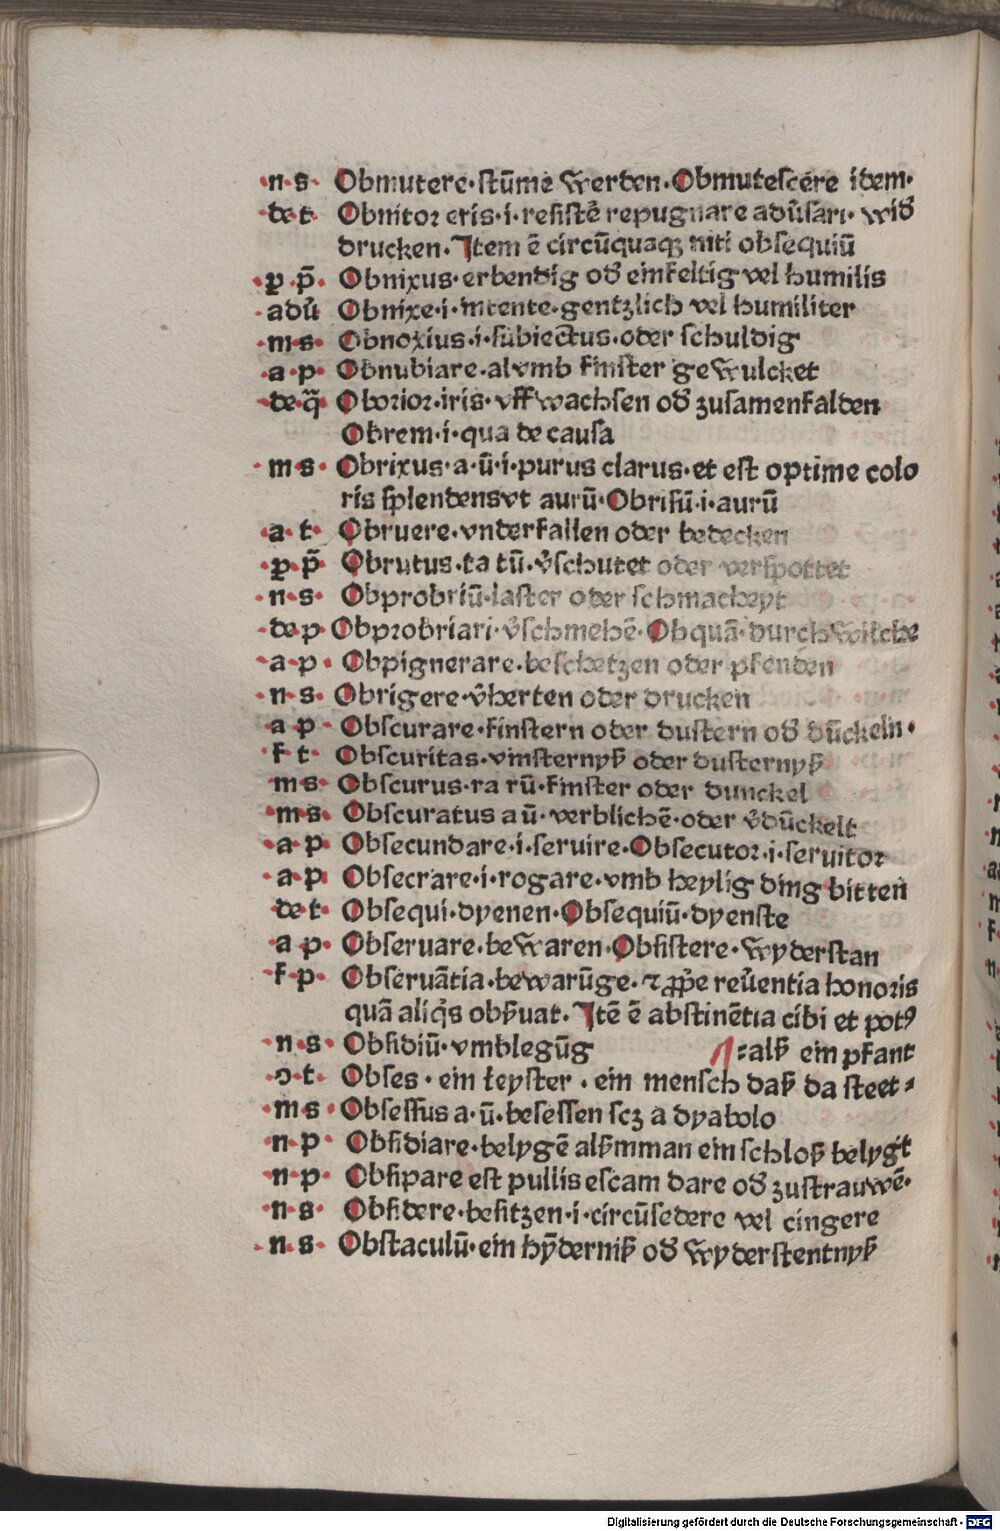 ·n·s· Obmutere·stūme werden·Obmutescere idem·
·de·t· Obnitoꝛ eris·i·resistē repugnare adũsari· wid̄
drucken·Item ē circūquaqꝫ niti obsequiū
·p·p̄· Obnixus·erbendig od̄ einfeltig vel humilis
·adũ Obnixe·i·intente·gentzlich vel humiliter
·m·s· Obnoxius·i·subiectus·oder schuldig
·a·p· Obnubiare·alvmb finster gewulcket
·de·q̄· Oborioꝛ·iris·vffwachsen od̄ zusamenfalden
Obrem·i·qua de causa
·m·s· Obrixus·a·ū·i·purus clarus·et est optime colo
ris splendensvt aurū·Obrisū·i·aurū
·a·t· Obruere·vnderfallen oder bedecken
·p·p̄· Obrutus·ta tū·v̄schutet oder verspottet
·n·s· Obprobriū·laster oder schmacheyt
·de·p Obpꝛobriari·v̄schmehē·Obquā·durchwilche
·a·p· Obpignerare·beschetzen oder pfenden
·n·s· Obrigere·v̄herten oder drucken
·a·p· Obscurare·finstern oder dustern od̄ dūckeln·
·f·t· Obscuritas·vinsternyß oder dusternyß
m·s· Obscurus·ra rū·finster oder dunckel
·m·s· Obscuratus a ū·verblichē·oder v̄dūckelt
·a·p· Obsecundare·i·seruire·Obsecutoꝛ·i·seruitor
·a·p· Obsecrare·i·rogare·vmb heylig ding bitten
·de·t· Obsequi·dyenen·Obsequiū·dyenste
·a·p· Obseruare·bewaren·Obsistere·Wyderstan
·f·p· Obseruātia·bewarūge·⁊ ꝓpe reũentia honoꝛis
quā aliq̇s obẜuat·Itē ē abstinētia cibi et potꝰ
·n·s· Obsidiū·vmblegūg ⸗alß ein pfant
·ɔ·t· Obses·ein leyster·ein mensch daß da steet⸗
·m·s· Obsessus a·ū·besessen scꝫ a dyabolo
·n·p· Obsidiare·belygē alßmman ein schloß belygt
·n·p· Obsipare est pullis escam dare od̄ zustrauwē·
·n·s· Obsidere·besitzen·i·circūsedere vel cingere
·n·s· Obstaculū·ein hȳderniß od̄ wyderstentnyß
Digitalisierung gefördert durch die Deutsche Forschungsgemeinschaft - DFG